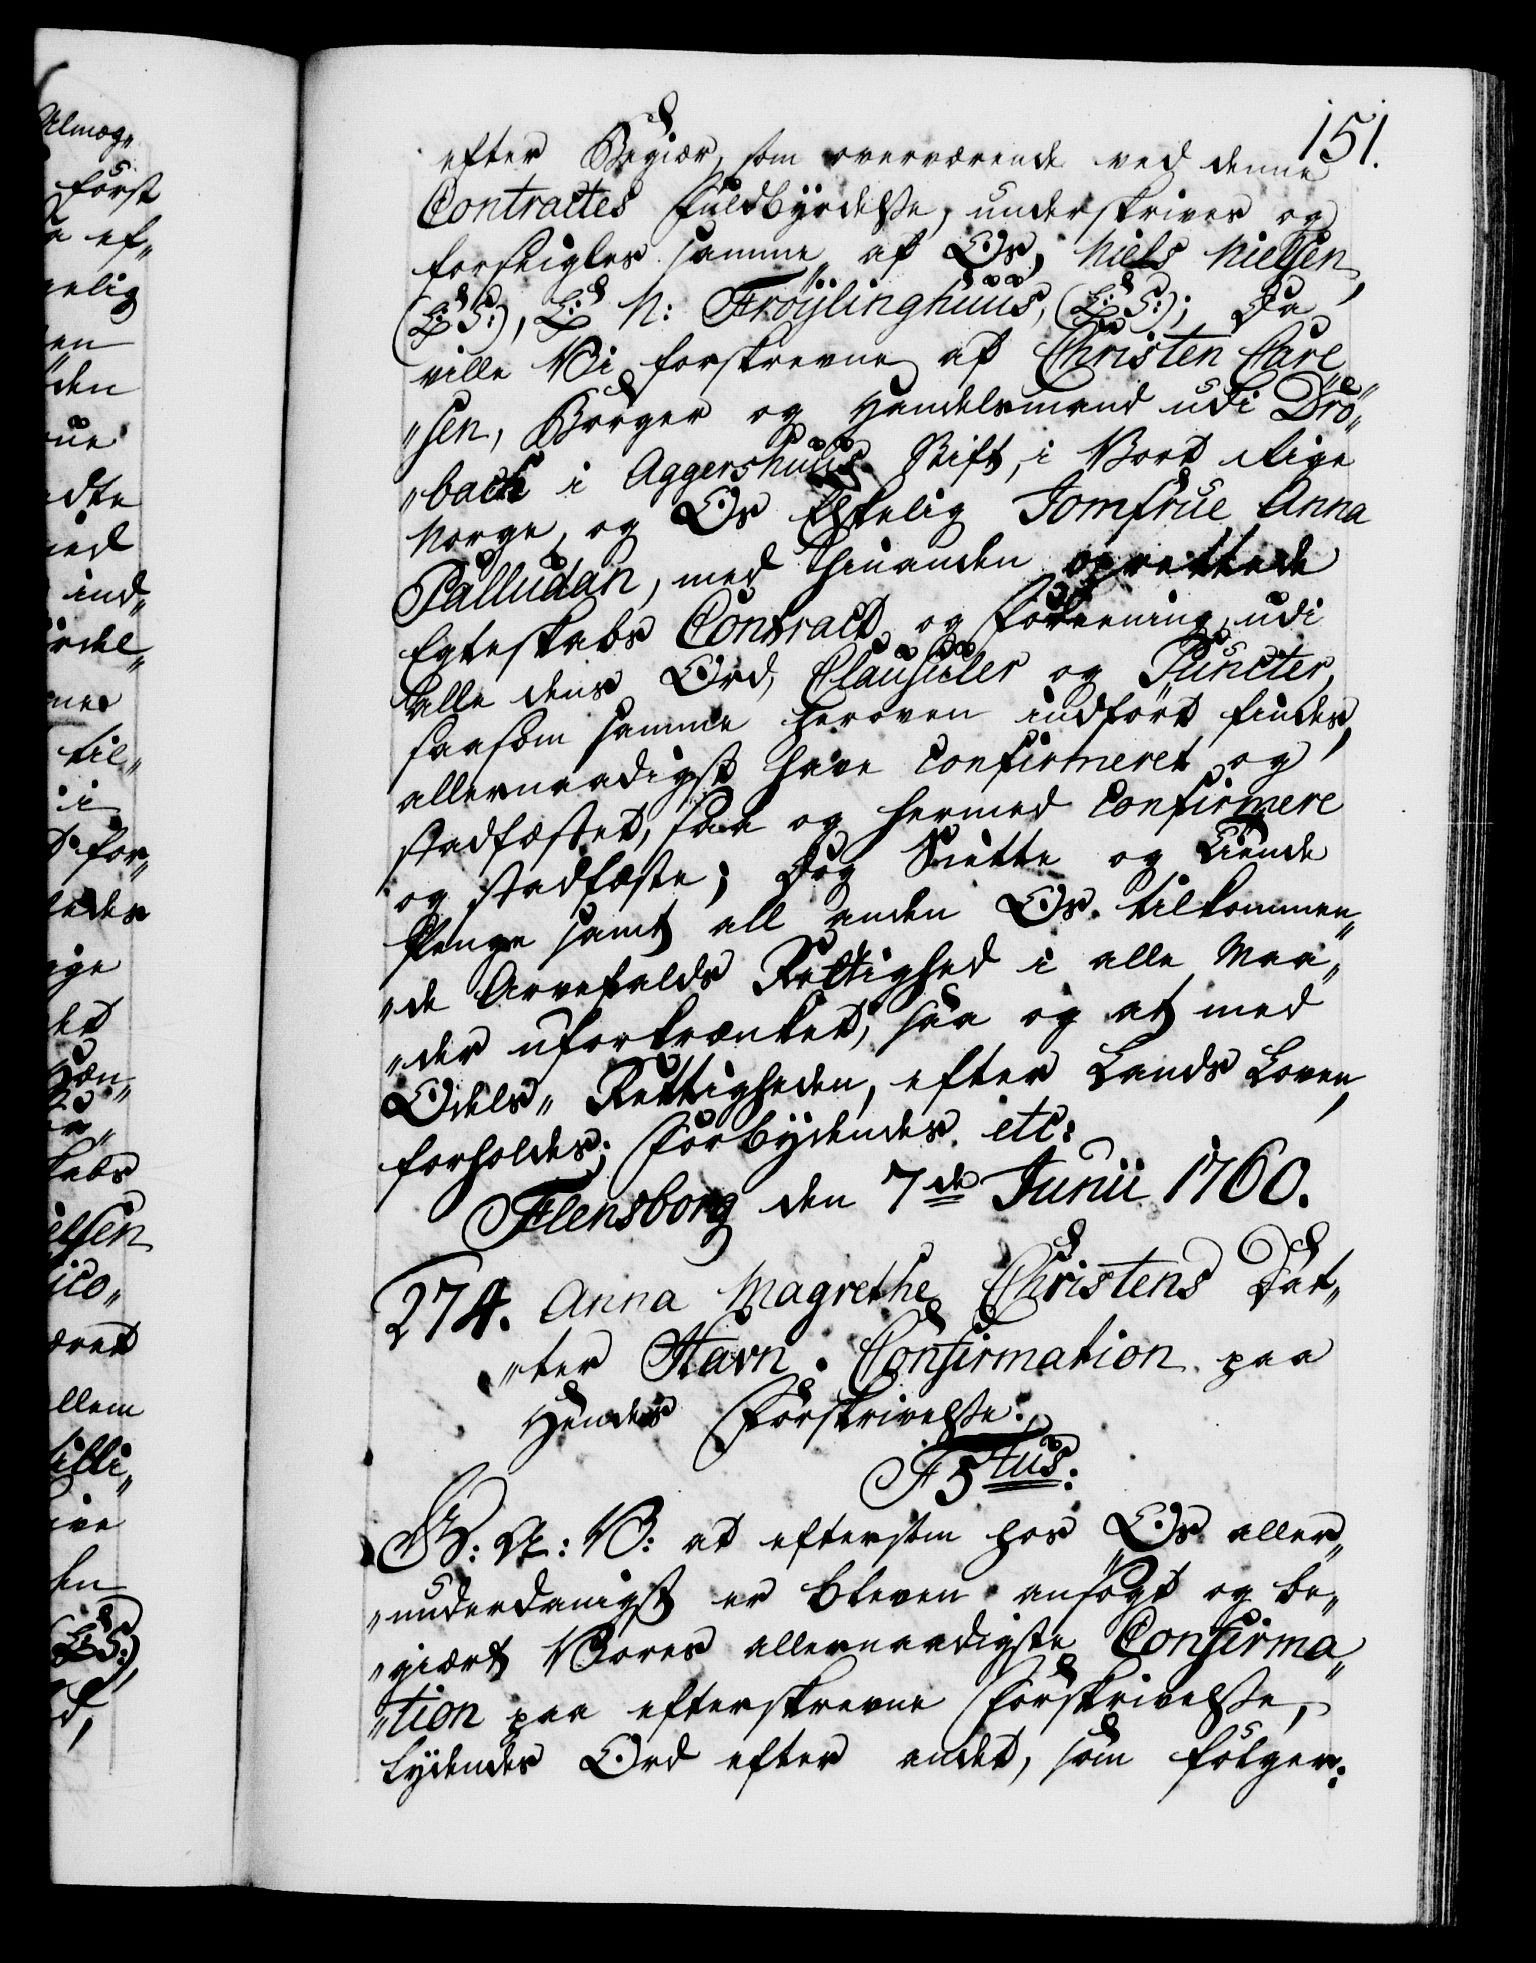 151.
efter Begiær, som overværende ved denne
Contractes Fuldbyrdelse, underskrives og
forseigles samme af Os, Niels Nielsen,
(L: S:), L: N: Fröylinghuus, (L: S:); Da
ville Vi forskrevne af Christen Carl„
„sen, Borger og Handelsmand udi Drö„
„bach i Aggershuus Stift, i Vort Rige
Norge, og Os Elskelig Jomfrue Anna
Palludan, med hinanden oprettede
Egteskabs Contract og Foreening udi
alle dens Ord, Clausuler og Puncter,
saasom samme heroven indført findes,
allernaadigst have confirmeret og
stadfæstet, saa og hermed Confirmere
og stadfæste; Dog Siette og Tiende
Penge samt all anden Os tilkommen„
„de Arvefalds Rettighed i alle Maa„
„der uforkrænket, saa og at med
Odels„ Rettigheden, efter Lands Loven,
forholdes; Forbydendes etc:
Flensborg den 7de Junii 1760.
274. Anna Magrethe Christens Dat„
„ter Havn. Confirmation paa
Hendes Forskrivelse.
F 5tus:
G: A: V: at eftersom hos Os aller„
„underdanigst er bleven ansögt og be„
„giært Vores allernaadigste Confirma„
„tion paa efterskrevne Forskrivelse,
lydendes Ord efter andet, som fölger: